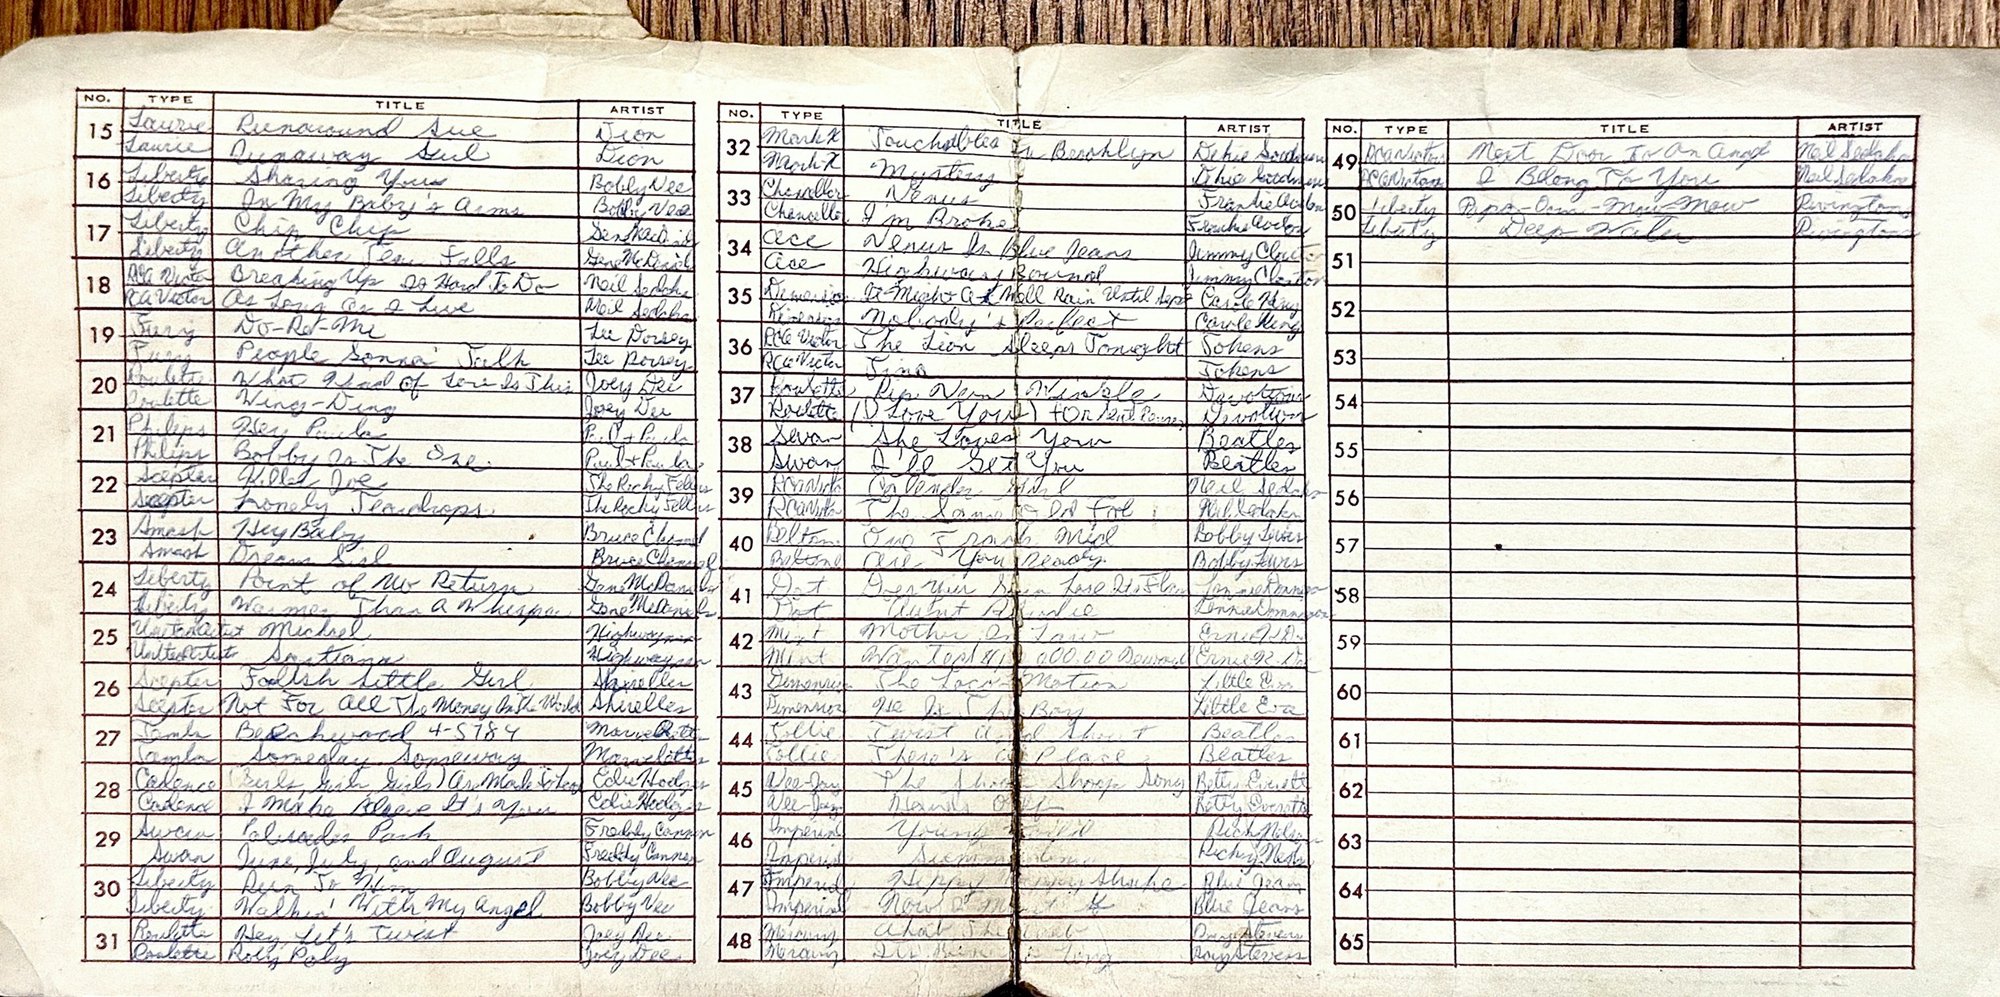 NO. TYPE TITLE ARTIST
15 Laurie Runaround Sue Dion
Laurie Runaway Girl Dion
16 Liberty Sharing You Bobby Vee
Liberty In My Baby's Arms Bobby Vee
17 Liberty Chip Chip
Liberty Another Tear Falls Gene McDaniels
18 RCA Victor Breaking Up Is Hard To Do Neil Sedaka
RCA Victor As Long As I Live Neil Sedaka
19 Fury Do-Re-Mi Lee Dorsey
Fury People Gonna' Talk Lee Dorsey
20 Roulette What Kind Of Love Is This Joey Dee
Roulette Wing-Ding Joey Dee
21 Philips Hey Paula Paul + Paula
Philips Bobby Is The One Paul + Paula
22 Scepter Killer Joe The Rocky Fellers
Scepter Lonely Teardrops The Rocky Fellers
23 Smash Hey Baby Bruce Channel
Smash Dream Girl Bruce Channel
24 Liberty Point of No Return Gene McDaniels
Liberty Warmer Than A Whisper Gene McDaniels
25 United Artist Michael Highwaymen
United Artists Santiano Highwaymen
26 Scepter Foolish Little Girl Shirelles
Scepter Not For All The Money In The World Shirelles
27 Tamla Beechwood 4-5789 Marvelettes
Tamla Someday Someway Marvelettes
28 Cadence (Girls, Girls, Girls) Are Made To Love Edie Hodges
Cadence I Make Believe It's You Edie Hodges
29 Swan Palisades Park Freddy Cannon
Swan June, July, and August Freddy Cannon
30 Liberty Run To Him Bobby Vee
Liberty Walkin' With My Angel Bobby Vee
31 Roulette Hey, Let's Twist Joey Dee
Roulette Roly Poly Joey Dee
NO. TYPE TITLE ARTIST
32 Mark X Touchables In Brooklyn Dickie Goodman
Mark X Mystery Dickie Goodman
33 Chancellor Venus Frankie Avalon
Chancellor I'm Broke Frankie Avalon
34 Ace Venus In Blue Jeans Jimmy Clanton
Ace Highway Bound Jimmy Clanton
35 Dimension It Might As Well Rain Until Sept Carole King
Dimension Nobody's Perfect Carole King
36 RCA Victor The Lion Sleeps Tonight Tokens
RCA Victor Tina Tokens
37 Roulette Rip Van Winkle Devotions
Roulette (I Love You) For Devotions
38 Swan She Loves You Beatles
Swan I'll Get You Beatles
39 RCA Victor Calendar Girl Neil Sedaka
RCA Victor The Same Old Fool Neil Sedaka
40 Beltone One Track Mind Bobby Lewis
Beltone Are You Ready Bobby Lewis
41 Dot Does Your Gum Lose Its Flavor Lonnie Donnegan
Dot Aunt Rhodie Lonnie Donnegan
42 Mint Mother In Law Ernie K. Doe
Mint Wanted $10,000.00 Reward Ernie K. Doe
43 Dimension The Loco-Motion Little Eva
Dimension He Is The Boy Little Eva
44 Tollie Twist And Shout Beatles
Tollie There's A Place Beatles
45 Vee-Jay The Shoop Shoop Song Betty Everett
Vee-Jay Hands Off Betty Everett
46 Imperial Young Rick Nelson
Imperial Ricky Nelson
47 Imperial Hippy Hippy Shake Blue Jeans
Imperial Now I Must Go Blue Jeans
48 Mercury Ahab The Arab Ray Stevens
Mercury Long Ray Stevens
NO. TYPE TITLE ARTIST
49 RCA Victor Next Door To An Angel Neil Sedaka
RCA Victor I Belong To You Neil Sedaka
50 Liberty Papa-Oom-Mow-Mow Rivingtons
Liberty Deep Water Rivingtons
51
52
53
54
55
56
57
58
59
60
61
62
63
64
65